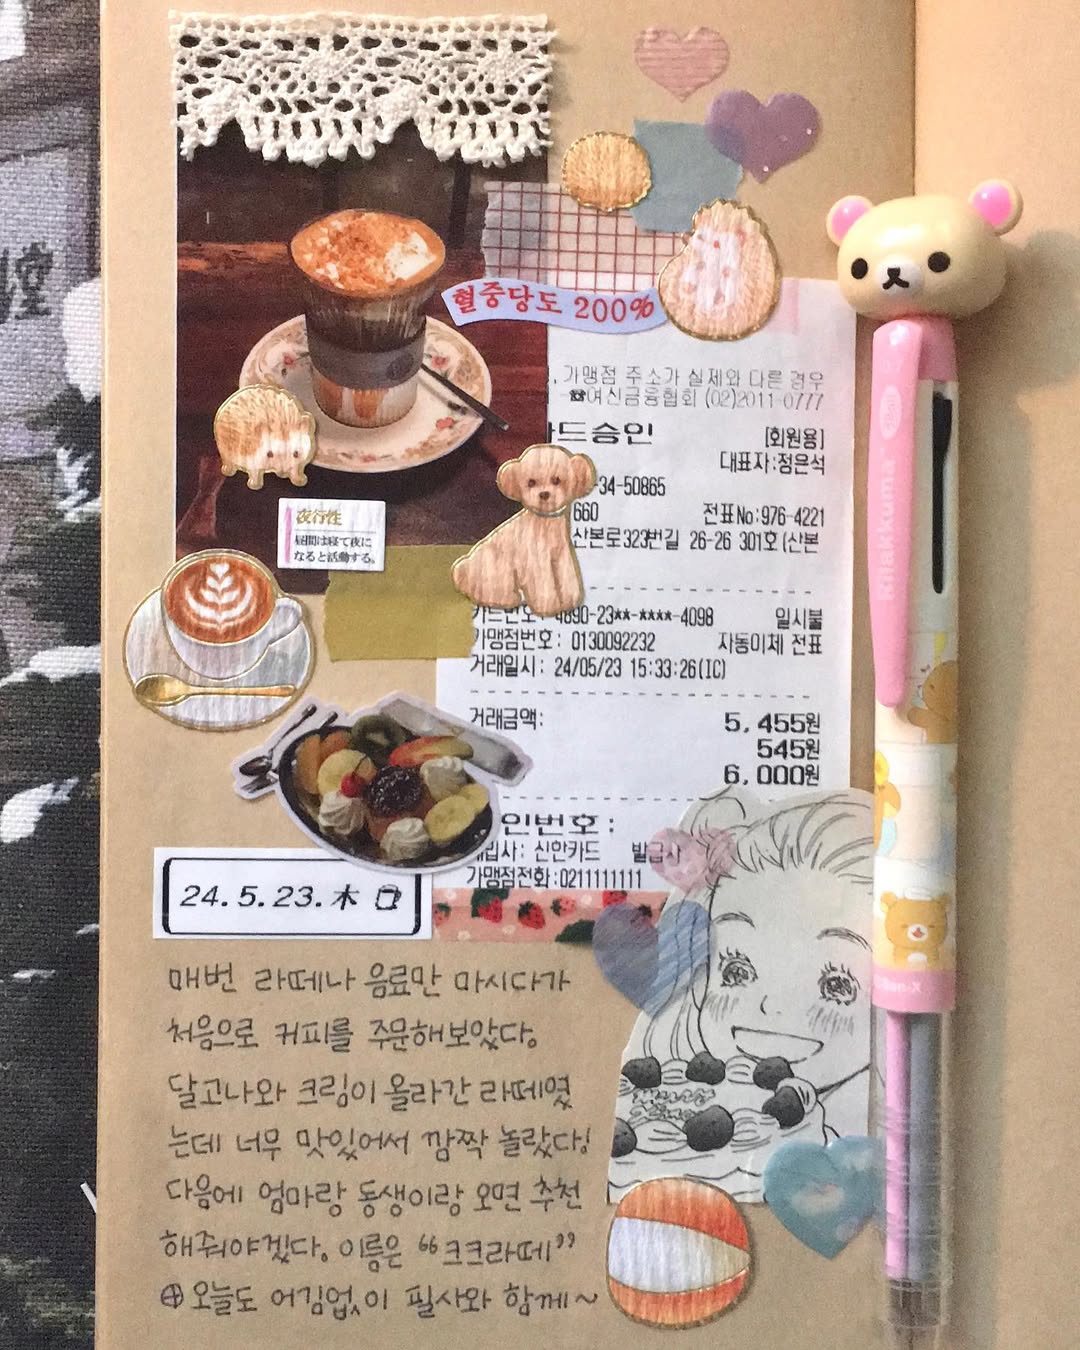 堂
혈중당도 200%
, 가맹점 주소가 실제와 다른 경우
☎여신금융협회 (02)2011-0777
드승인 [회원용]
대표자:정은석
-34-50865
660 전표No:976-4221
산본로323번길 26-26 301호(산본
夜行性
昼間は寝て夜に
なると活動する。
카드번호: 4890-23**-****-4098 일시불
가맹점번호: 0130092232 자동이체 전표
거래일시: 24/05/23 15:33:26(IC)
거래금액: 5,455원
545원
6,000원
인번호:
매입사: 신한카드 발급사
가맹점전화:0211111111
24.5.23.木
매번 라떼나 음료만 마시다가
처음으로 커피를 주문해보았다.
달고나와 크림이 올라간 라떼였
는데 너무 맛있어서 깜짝 놀랐다!
다음에 엄마랑 동생이랑 오면 추천
해줘야겠다. 이름은 “크크라떼”
⊕ 오늘도 어김없이 필사와 함께~
Rilakkuma